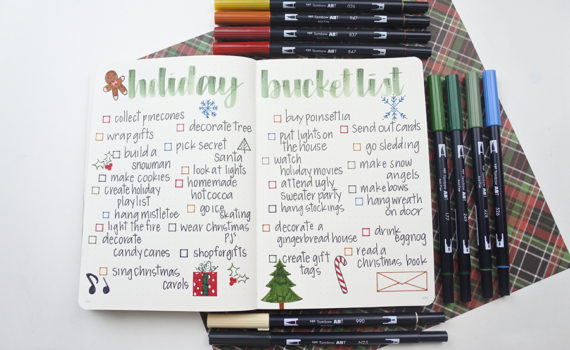 holiday bucket list
collect pinecones
decorate tree
wrap gifts
pick secret
santa
build a
snowman
look at lights
make cookies
homemade
hot cocoa
create holiday
play list
go ice
skating
hang mistletoe
light the fire
wear christmas
PJ's
decorate
candy canes
shop for gifts
sing christmas
carols
buy poinsettia
put lights on
the house
Send out cards
go sledding
watch
holiday movies
make snow
angels
attend ugly
sweater party
make bows
hang stockings
hang wreath
on door
decorate a
gingerbread house
drink
eggnog
create gift
tags
read a
christmas book
Tombow ABT
Tombow ABT 947
Tombow ABT 837
Tombow ABT 847
Tombow ABT 990
Tombow ABT N25